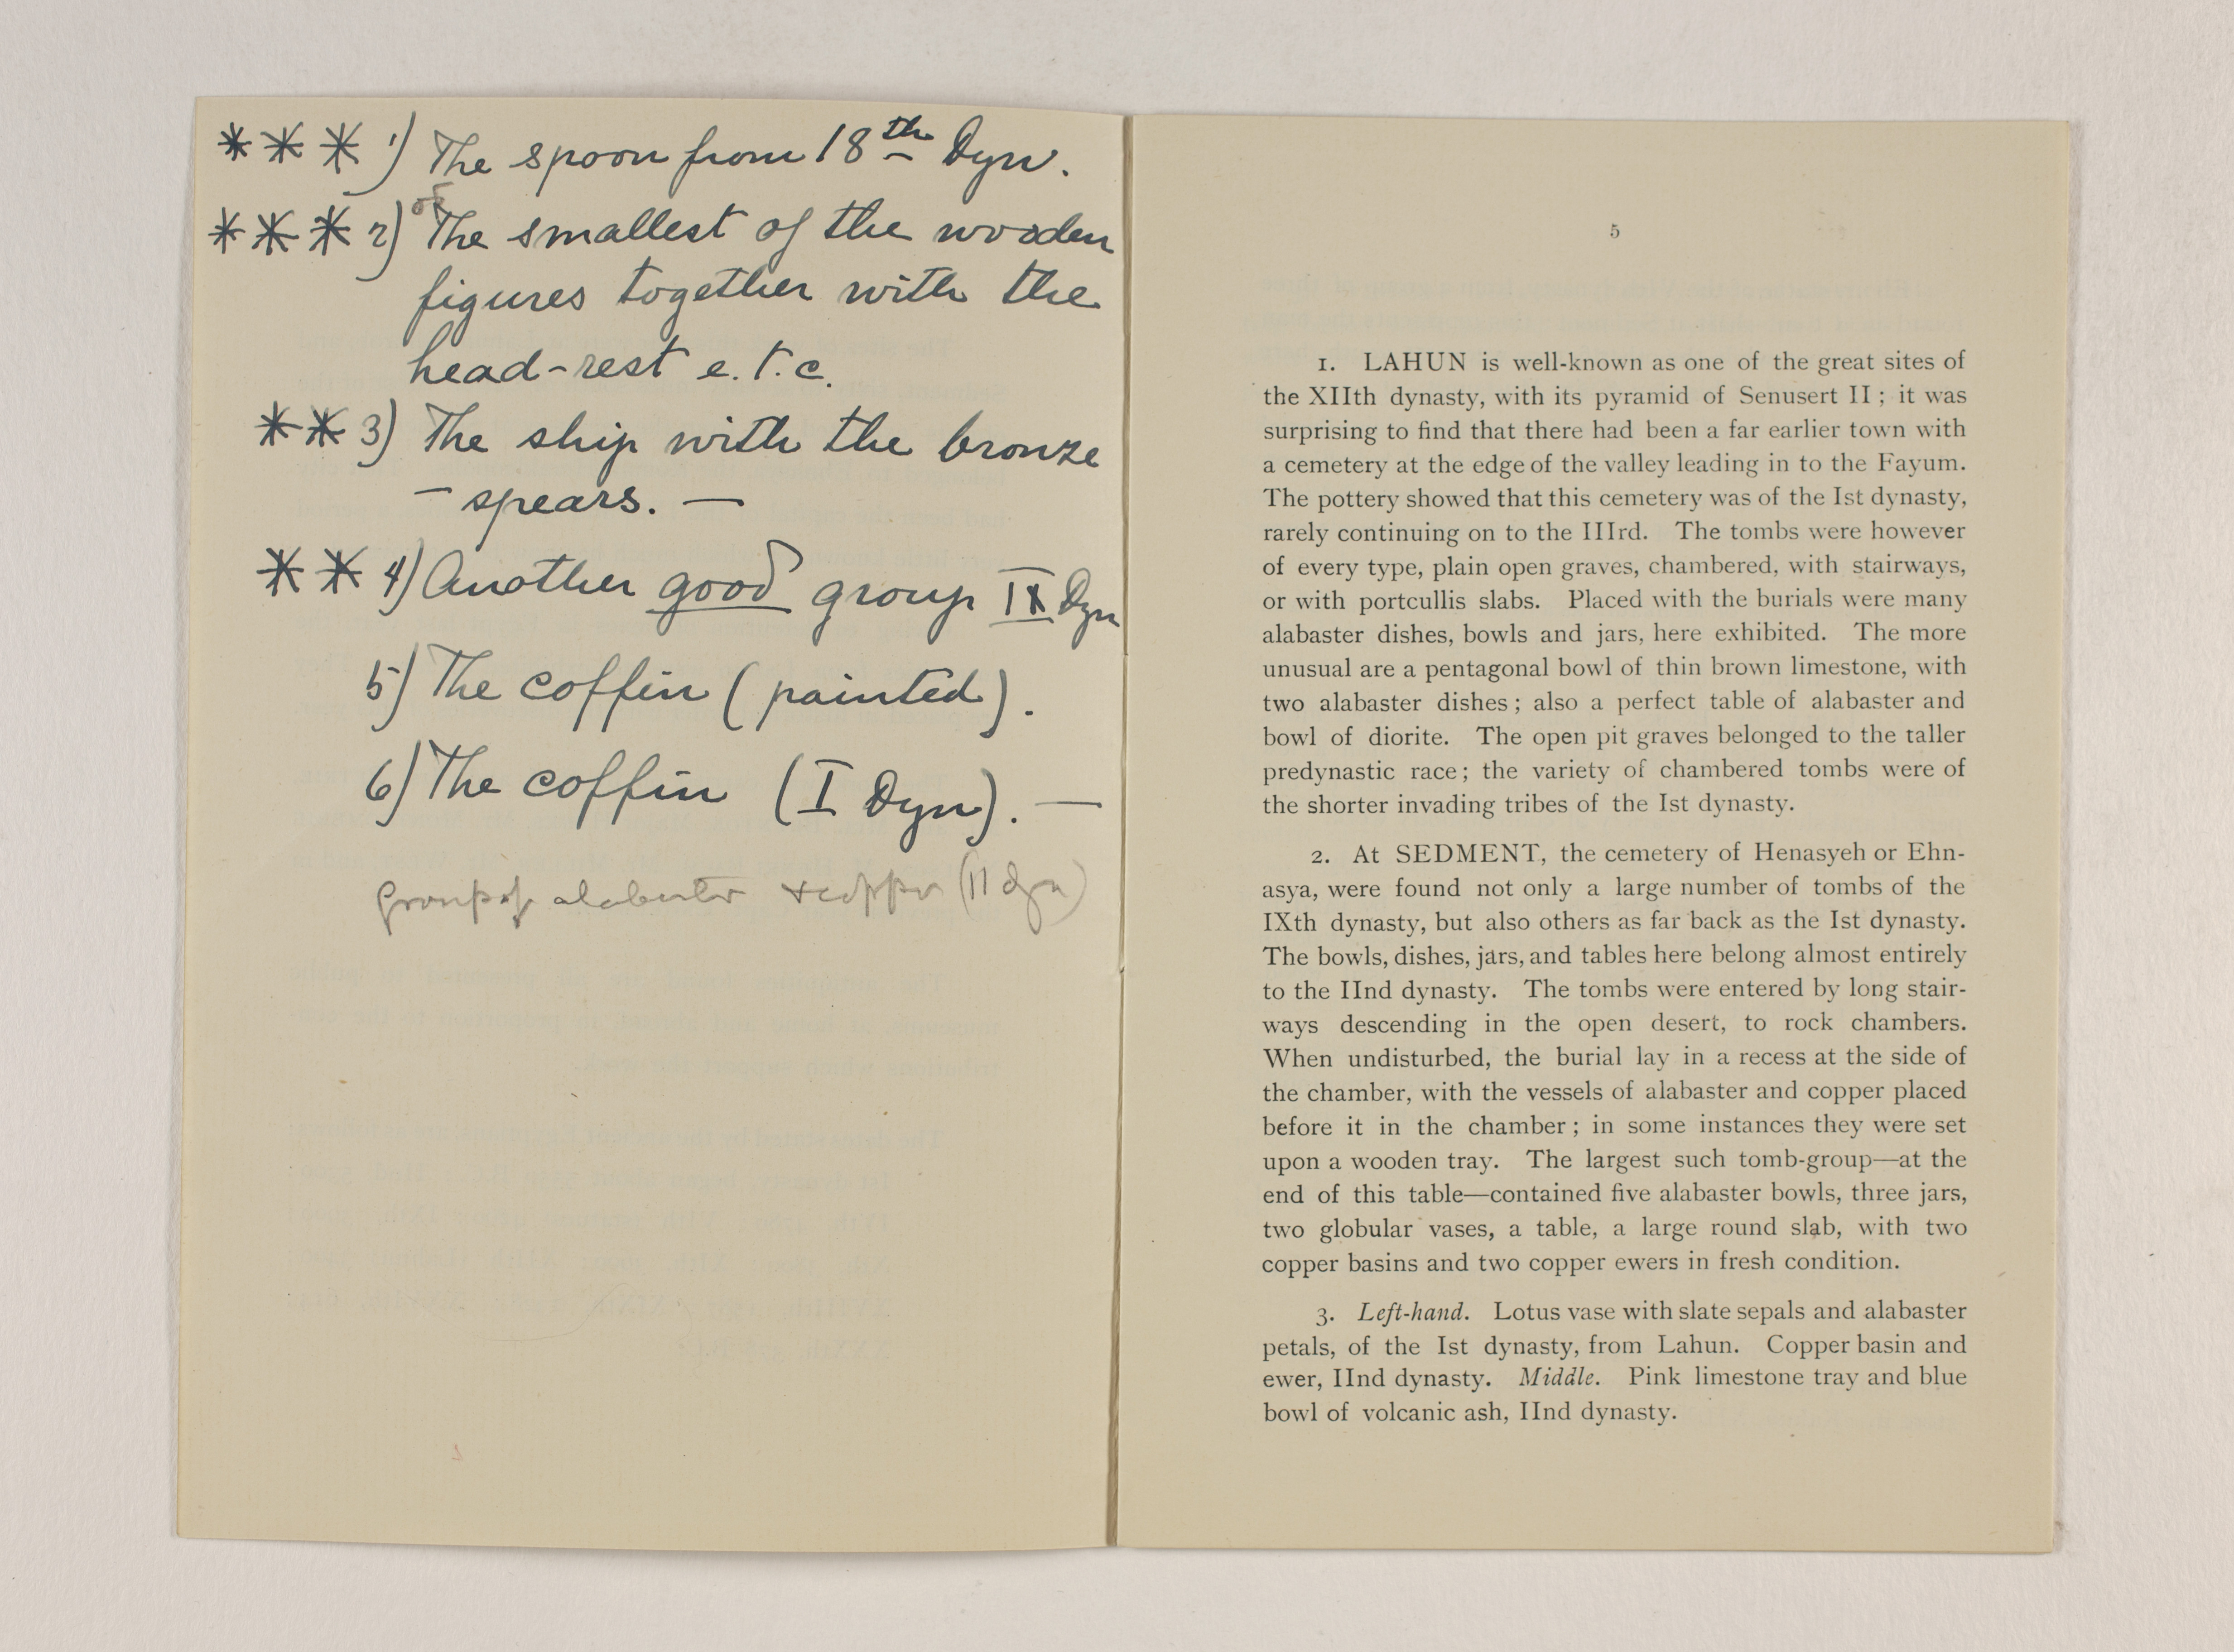 *** 1) The spoon from 18th Dyn.
*** 2) The smallest of the wooden
figures together with the
head-rest e.t.c.
** 3) The ship with the bronze
– spears. —
** 4) Another good group IX Dyn
5) The coffin (painted).
6) The coffin (I Dyn). —
group of alabaster + copper (II dyn)
5
1. LAHUN is well-known as one of the great sites of
the XIIth dynasty, with its pyramid of Senusert II ; it was
surprising to find that there had been a far earlier town with
a cemetery at the edge of the valley leading in to the Fayum.
The pottery showed that this cemetery was of the Ist dynasty,
rarely continuing on to the IIIrd. The tombs were however
of every type, plain open graves, chambered, with stairways,
or with portcullis slabs. Placed with the burials were many
alabaster dishes, bowls and jars, here exhibited. The more
unusual are a pentagonal bowl of thin brown limestone, with
two alabaster dishes ; also a perfect table of alabaster and
bowl of diorite. The open pit graves belonged to the taller
predynastic race ; the variety of chambered tombs were of
the shorter invading tribes of the Ist dynasty.
2. At SEDMENT, the cemetery of Henasyeh or Ehn-
asya, were found not only a large number of tombs of the
IXth dynasty, but also others as far back as the Ist dynasty.
The bowls, dishes, jars, and tables here belong almost entirely
to the IInd dynasty. The tombs were entered by long stair-
ways descending in the open desert, to rock chambers.
When undisturbed, the burial lay in a recess at the side of
the chamber, with the vessels of alabaster and copper placed
before it in the chamber ; in some instances they were set
upon a wooden tray. The largest such tomb-group—at the
end of this table—contained five alabaster bowls, three jars,
two globular vases, a table, a large round slab, with two
copper basins and two copper ewers in fresh condition.
3. Left-hand. Lotus vase with slate sepals and alabaster
petals, of the Ist dynasty, from Lahun. Copper basin and
ewer, IInd dynasty. Middle. Pink limestone tray and blue
bowl of volcanic ash, IInd dynasty.